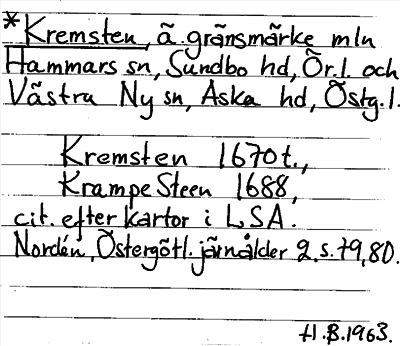 *Kremsten, ä. gränsmärke mln
Hammars sn, Sundbo hd, Ör.l. och
Västra Ny sn, Aska hd, Östg.l.
Kremsten 1670t.,
Krampe Steen 1688,
cit. efter kartor i LSA.
Nordén, Östergötl. järnålder 2, s. 79, 80.
H.B. 1963.